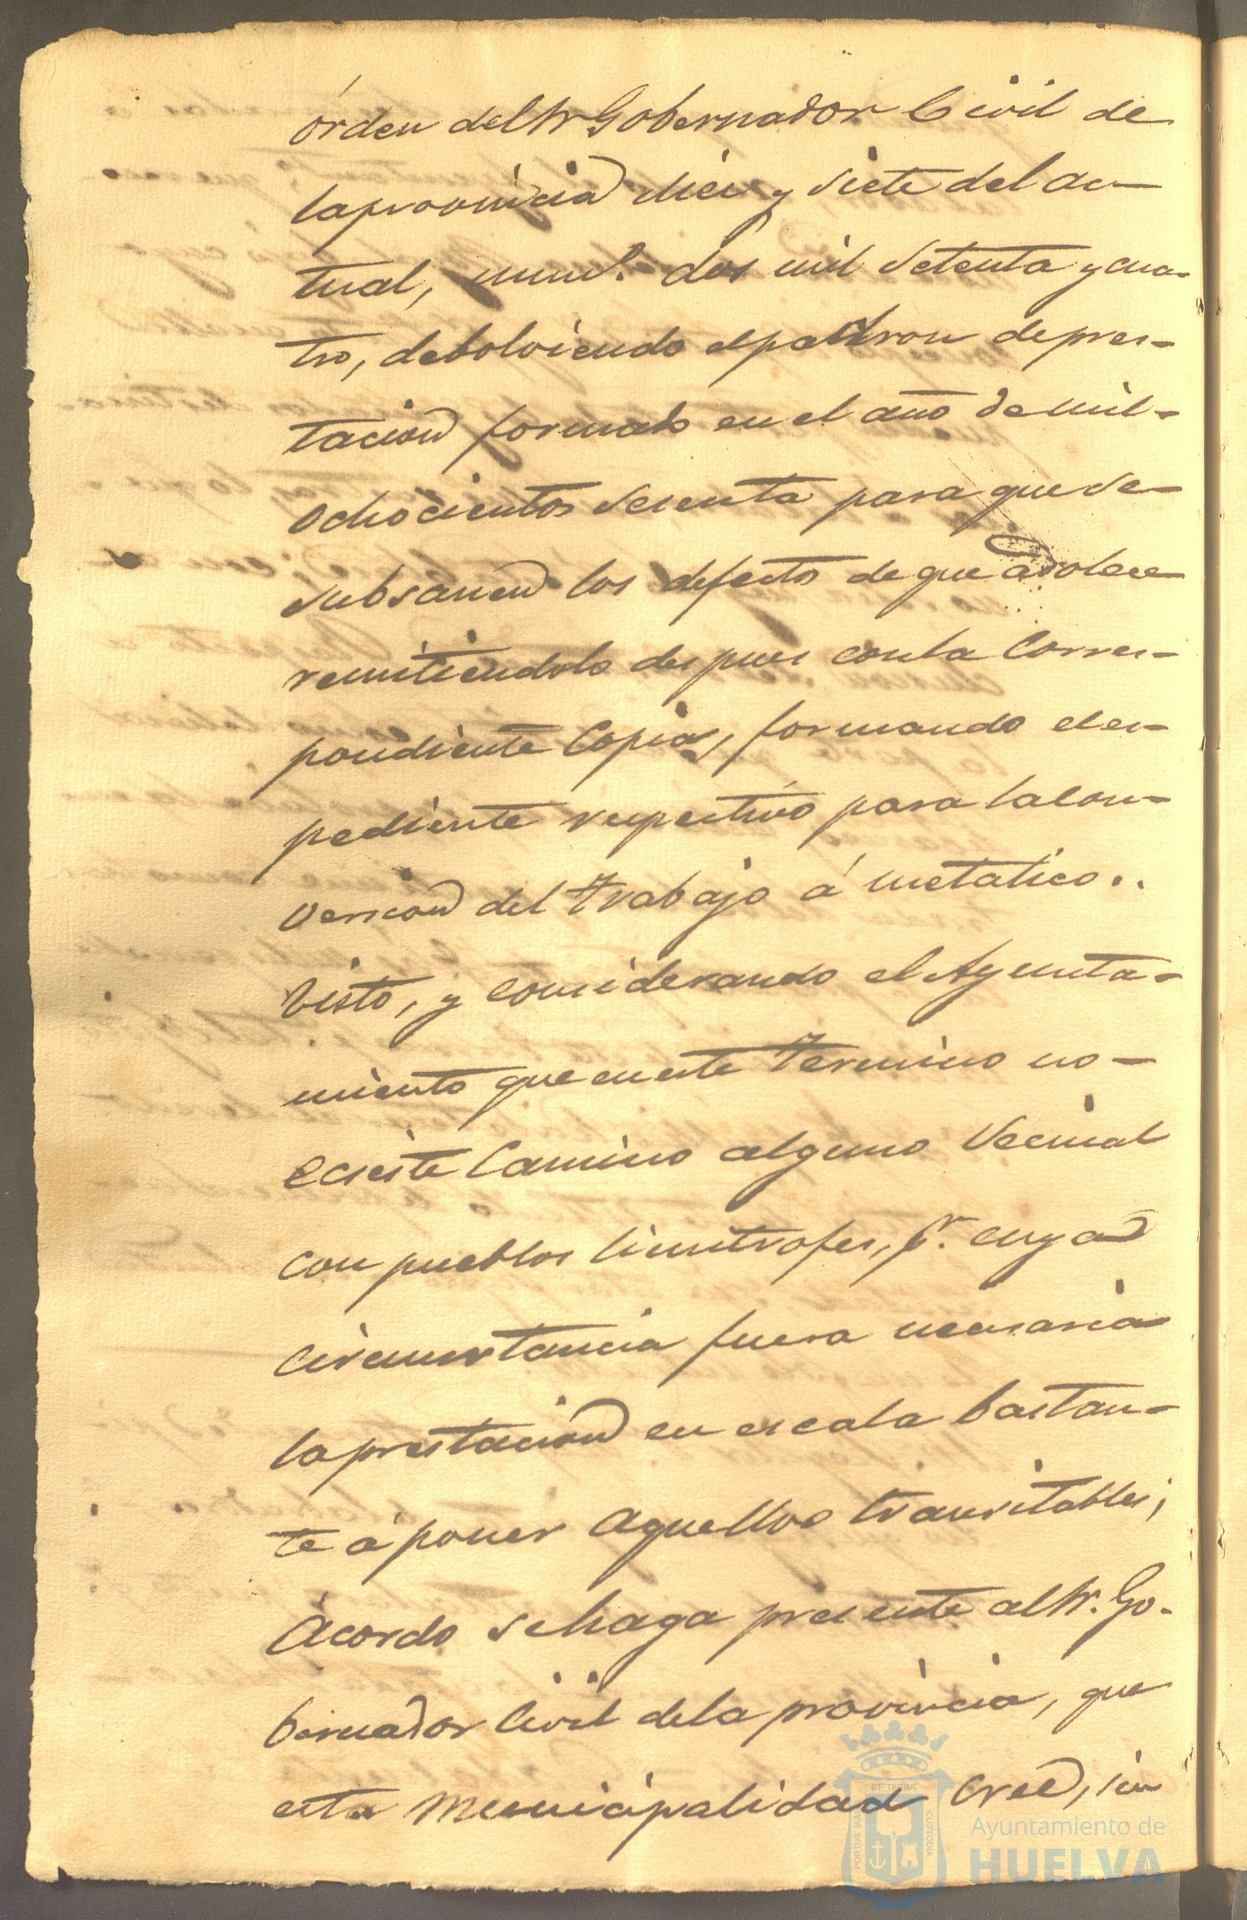 órden del Sr Gobernador Civil de
la provincia diez y siete del ac-
tual, numº. dos mil setenta y cua-
tro, debolviendo el padron de pres-
tacion formado en el año de mil-
ochocientos sesenta para que se-
subsanen los defectos de que adolece
remitiendolo despues con la Corres-
pondiente Copia, formando el es-
pediente respectivo para la con-
version del trabajo á metalico..
Visto, y considerando el Ayunta-
miento que en este termino no-
ecsiste Camino alguno Vecinal
con pueblos limitrofes, pr. cuya
circunstancia fuera necesaria
la prestacion en escala bastan-
te á poner aquellos transitables;
Acordo se haga presente al Sr. Go-
bernador Civil de la provincia, que
esta Municipalidad cree, sin
Ayuntamiento de
HUELVA
PORTUS MARIS
ET TERRAE
CUSTODIA